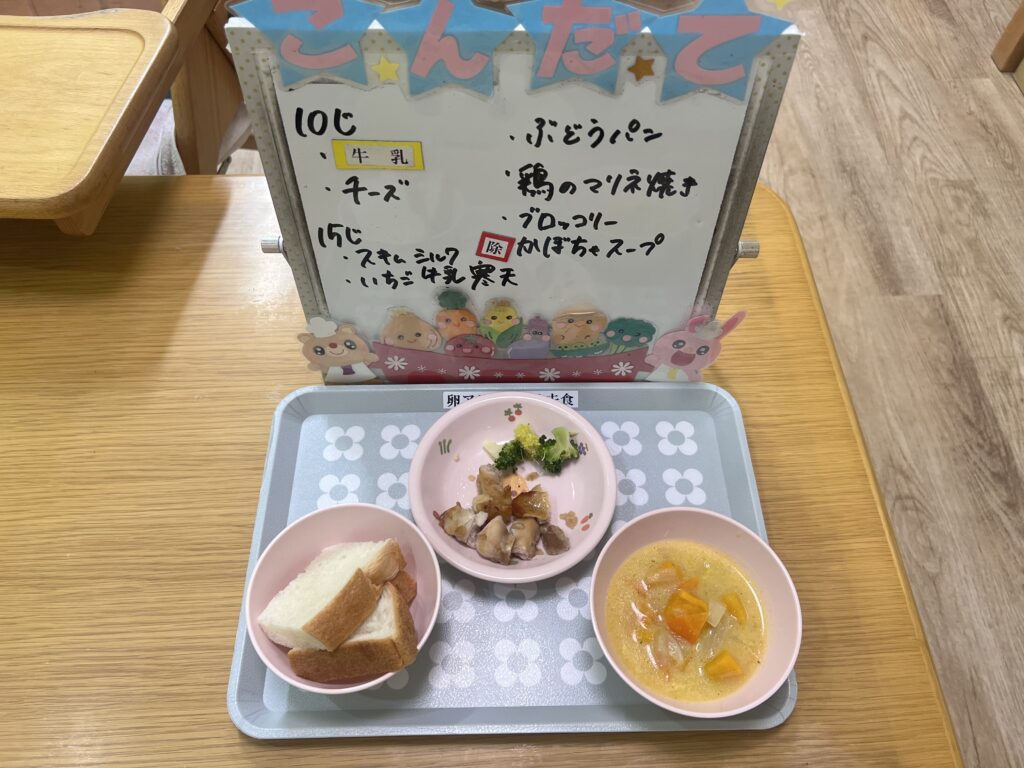 こんだて
10じ
・牛乳
・チーズ
15じ
・スキムミルク
・いちご牛乳寒天
・ぶどうパン
・鶏のマリネ焼き
・ブロッコリー
除 かぼちゃスープ